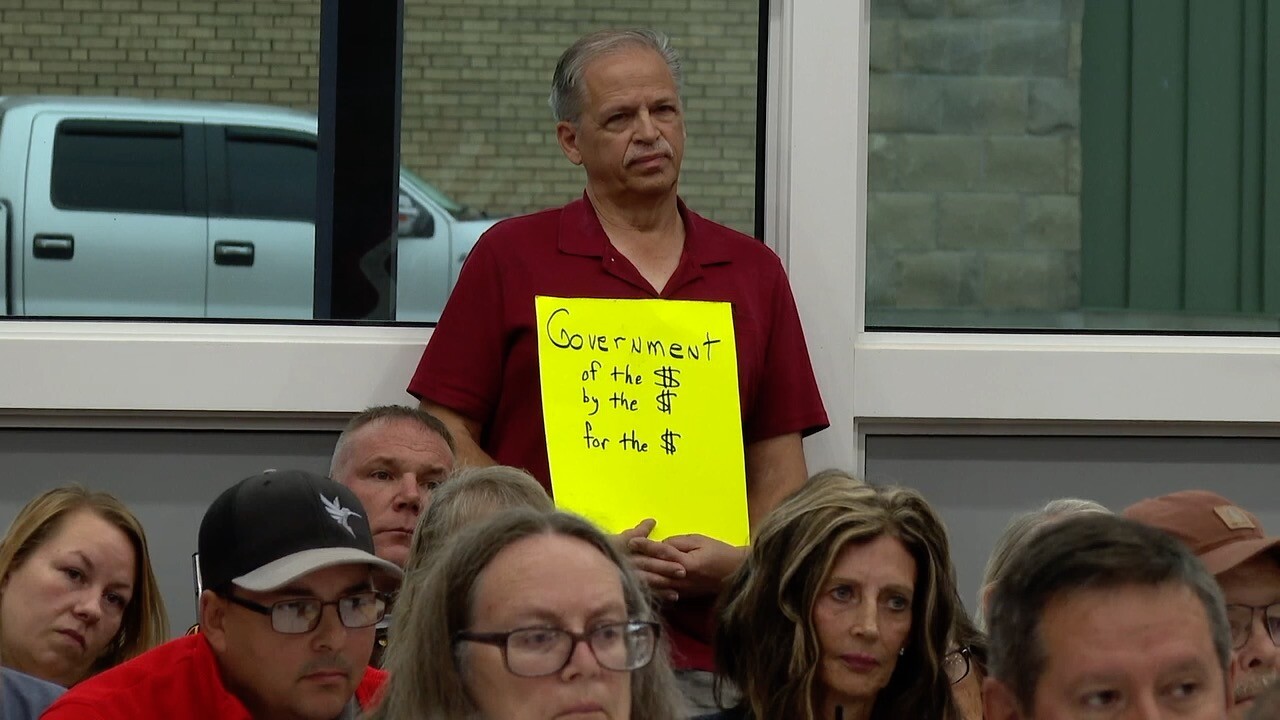 Government
of the $
by the $
for the $